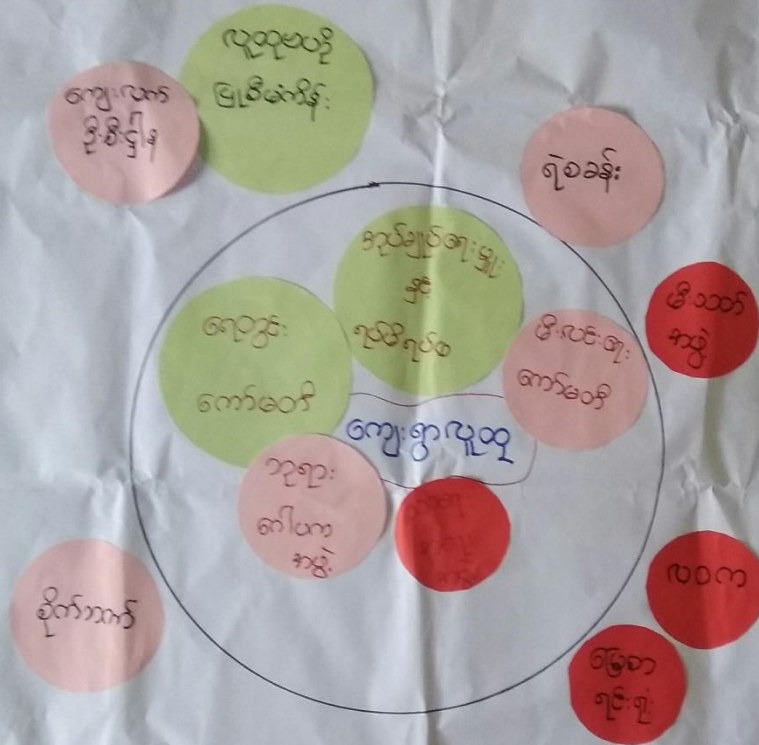 လူထုဗဟို
ပြုစီမံကိန်း
ကျေးလက်
ဦးစီးဌါန
ရဲစခန်း
အုပ်ချုပ်ရေးမှူး
နှင့်
ရပ်မိရပ်ဖ
မီးသတ်
အဖွဲ့
ရေတွင်း
ကော်မတီ
မီးလင်းရေး
ကော်မတီ
ကျေးရွာလူထု
ဘုရား
ဂေါပက
အဖွဲ့
စိုက်ဘဏ်
လဝက
မြေစာ
ရင်းရုံး